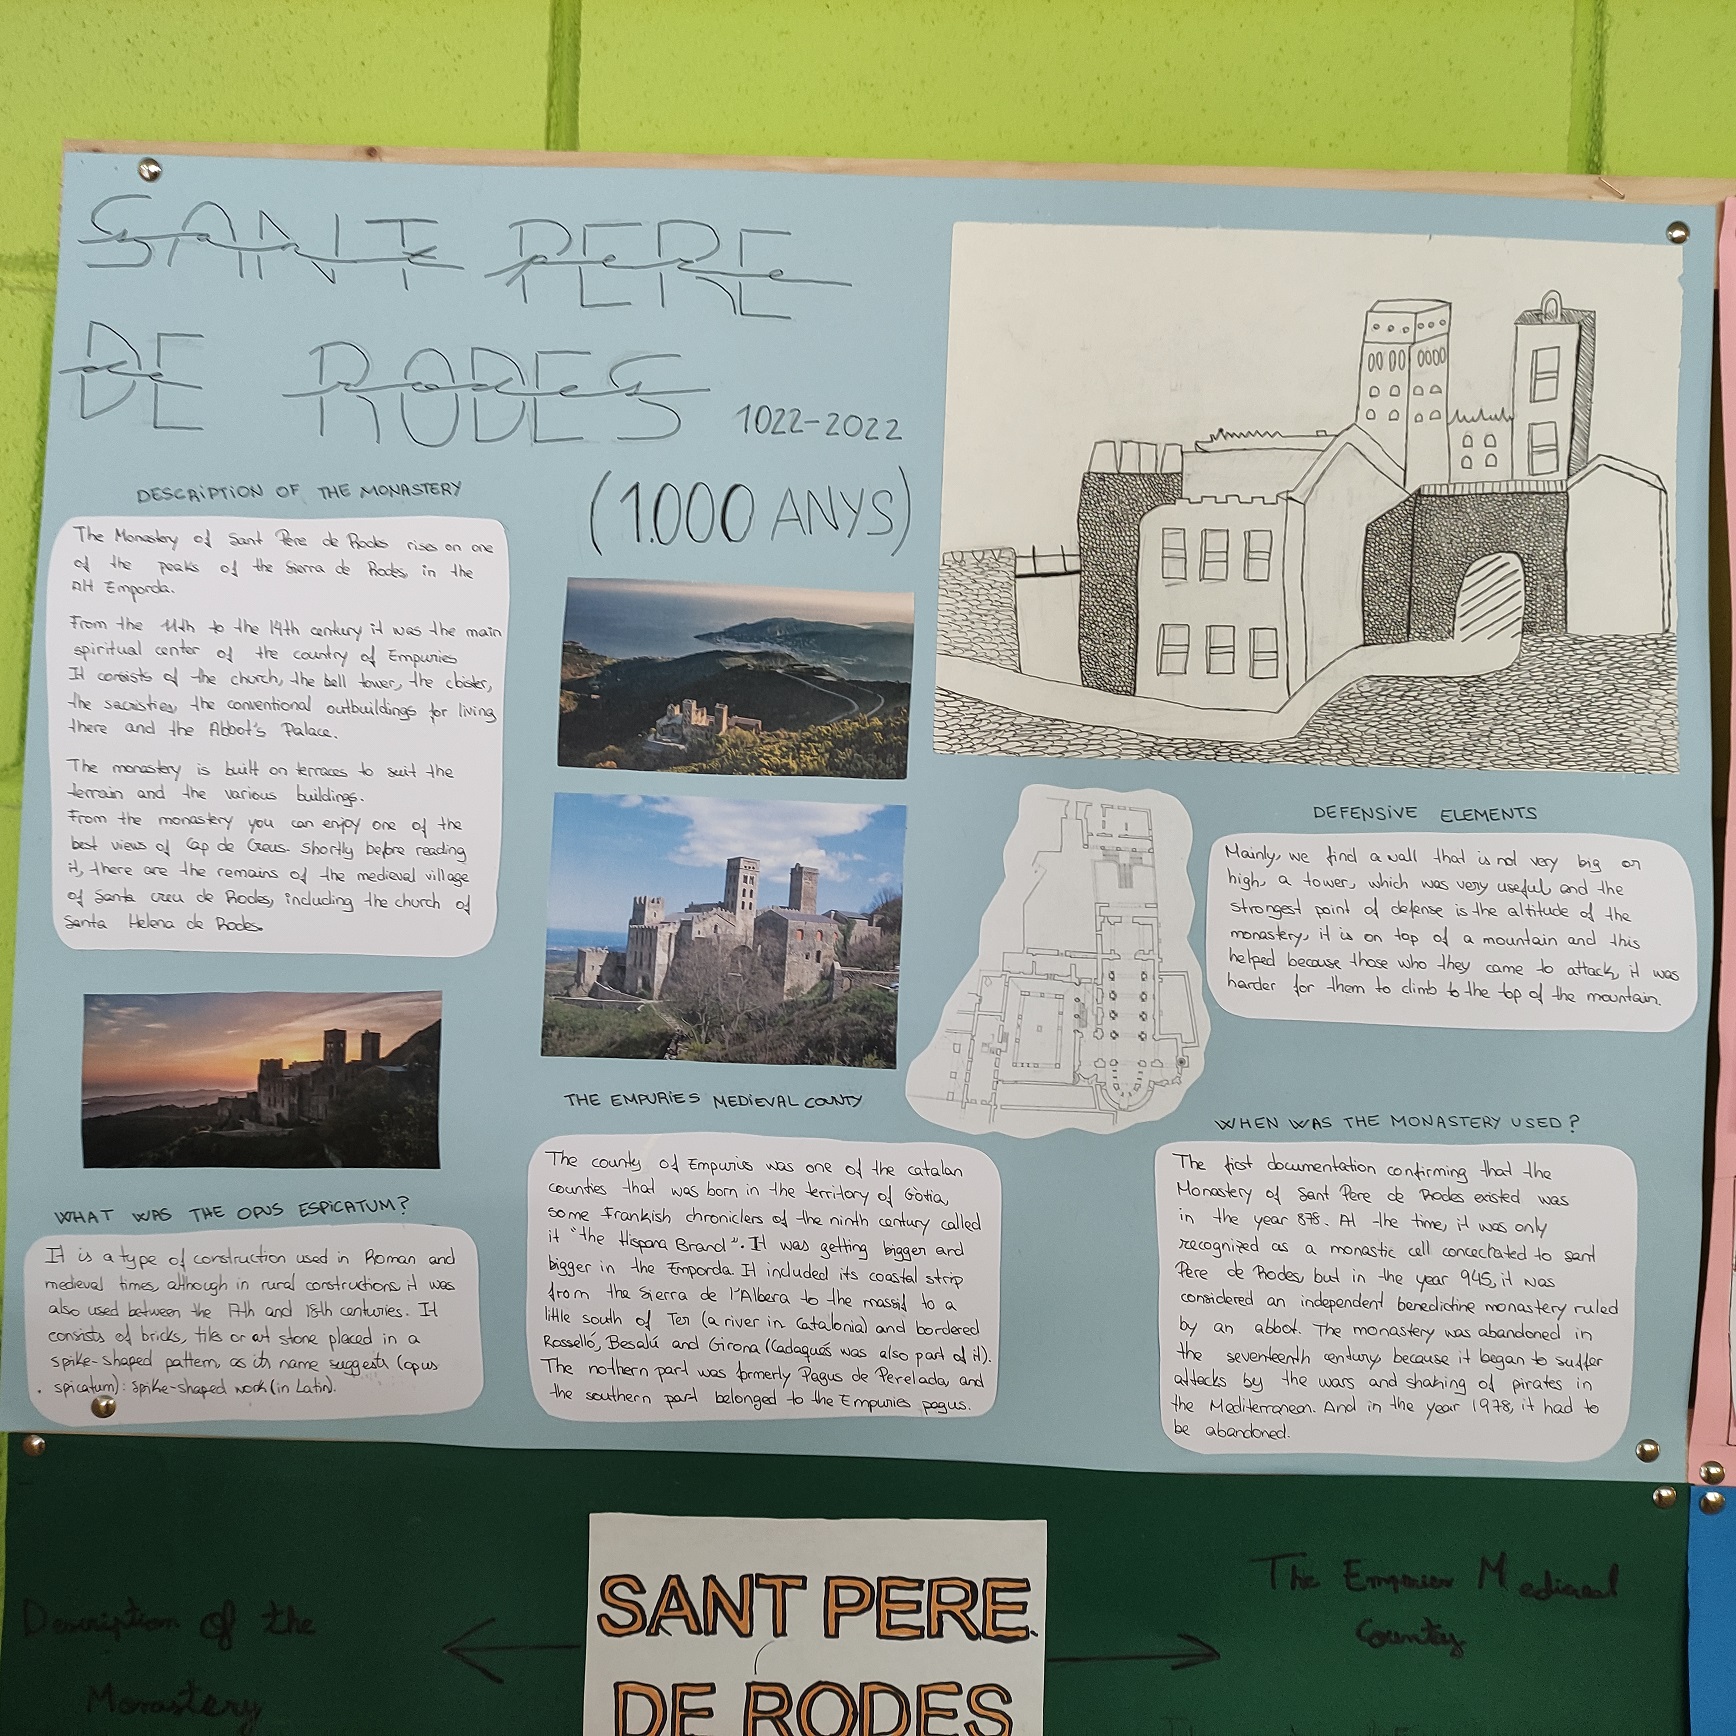 SANT PERE
DE RODES 1022-2022
(1.000 ANYS)
DESCRIPTION OF THE MONASTERY
The Monastery of Sant Pere de Rodes rises on one
of the peaks of the Sierra de Rodes, in the
Alt Emporda.
From the 11th to the 14th century it was the main
spiritual center of the country of Empuries
It consists of the church, the bell tower, the cloister,
the sacristies, the conventional outbuildings for living
there and the Abbot's Palace.
The monastery is built on terraces to suit the
terrain and the various buildings.
From the monastery you can enjoy one of the
best views of Cap de Creus. Shortly before reading
it, there are the remains of the medieval village
of Santa creu de Rodes, including the church of
Santa Helena de Rodes.
WHAT WAS THE OPUS ESPICATUM?
It is a type of construction used in Roman and
medieval times, although in rural constructions, it was
also used between the 17th and 18th centuries. It
consists of bricks, tiles or cut stone placed in a
spike-shaped pattern, as its name suggests (opus
spicatum): spike-shaped work (in Latin).
THE EMPURIES MEDIEVAL COUNTY
The county of Empuries was one of the catalan
counties that was born in the territory of Gòtia,
some Frankish chroniclers of the ninth century called
it "the Hispana Brand". It was getting bigger and
bigger in the Emporda. It included its coastal strip
from the Sierra de l'Albera to the massif to a
little south of Ter (a river in Catalonia) and bordered
Rosselló, Besalú and Girona (Cadaqués was also part of it).
The nothern part was formerly Pagus de Perelada, and
the southern part belonged to the Empuries pagus.
DEFENSIVE ELEMENTS
Mainly, we find a wall that is not very big or
high, a tower, which was very useful, and the
strongest point of defense is the altitude of the
monastery, it is on top of a mountain and this
helped because those who they came to attack, it was
harder for them to climb to the top of the mountain.
WHEN WAS THE MONASTERY USED?
The first documentation confirming that the
Monastery of Sant Pere de Rodes existed was
in the year 878. At the time, it was only
recognized as a monastic cell concectated to sant
Pere de Rodes, but in the year 945, it was
considered an independent benedictine monastery ruled
by an abbot. The monastery was abandoned in
the seventeenth century, because it began to suffer
attacks by the wars and shaking of pirates in
the Mediterranean. And in the year 1978, it had to
be abandoned.
SANT PERE
DE RODES
Description of the
Monastery
The Empuries Medieval
County